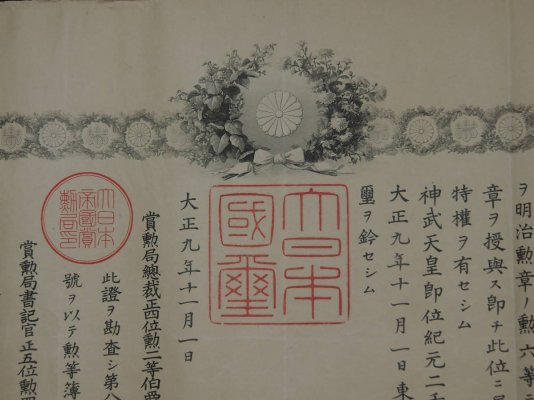 ヲ明治勲章ノ勲六等ニ
章ヲ授與ス即チ此位ニ
特權ヲ有セシム
神武天皇即位紀元二千
大正九年十一月一日東
璽ヲ鈐セシム
大日本
國璽
大正九年十一月一日
賞勲局總裁正四位勲二等伯爵
此證ヲ勘査シ第八
號ヲ以テ勲等簿
賞勲局書記官正五位勲四
大日本
帝國賞
勲局印